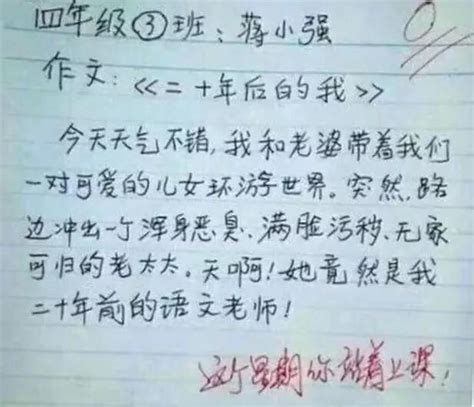 四年级③班：蒋小强
作文：《二十年后的我》
今天天气不错，我和老婆带着我们
一对可爱的儿女环游世界。突然，路
边冲出一个浑身恶臭、满脸污秽、无家
可归的老太太。天啊！她竟然是我
二十年前的语文老师！
这个星期你站着上课！
0